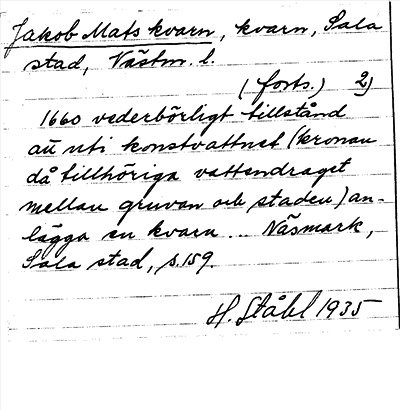 Jakob Mats kvarn, kvarn, Sala
stad, Västm. l.
(forts.) 2)
1660 vederbörligt tillstånd
att uti konstvattnet (kronan
då tillhöriga vattendraget
mellan gruvan och staden) an-
lägga en kvarn ... Näsmark,
Sala stad, s. 159.
H. Ståhl 1935